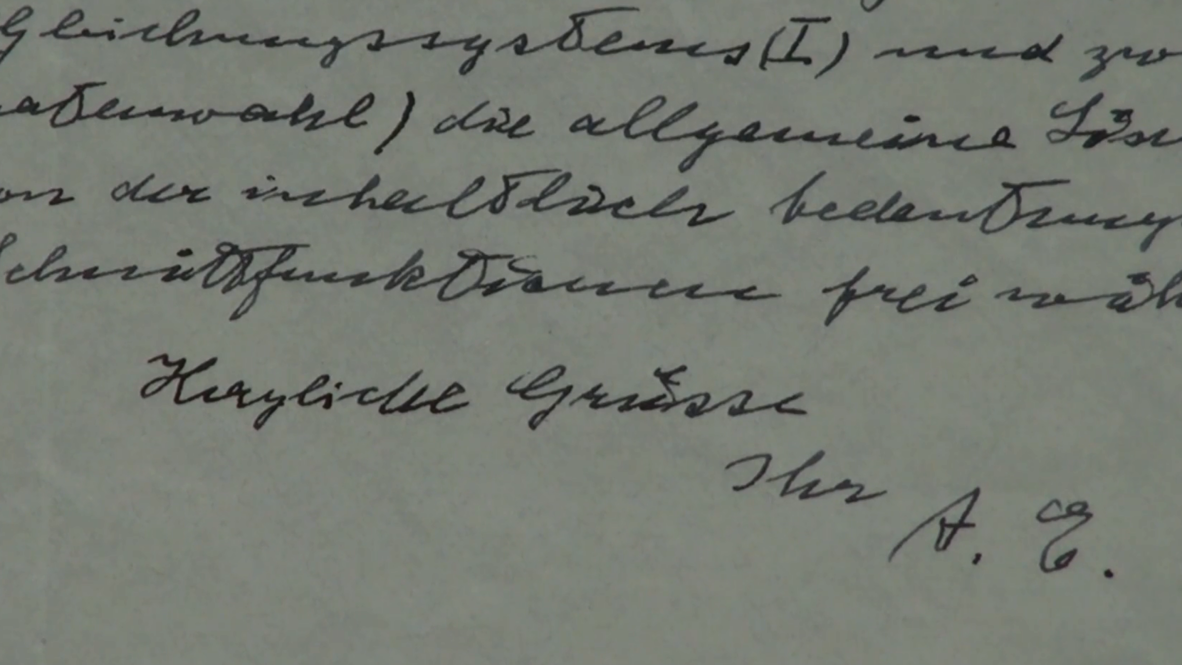 Gleichungssystems (I) und zw
atenwahl) die allgemeine Lösu
on der inhaltlich bedeutung
Schnittfunktionen frei wäh
Herzliche Grüsse
Ihr A. E.